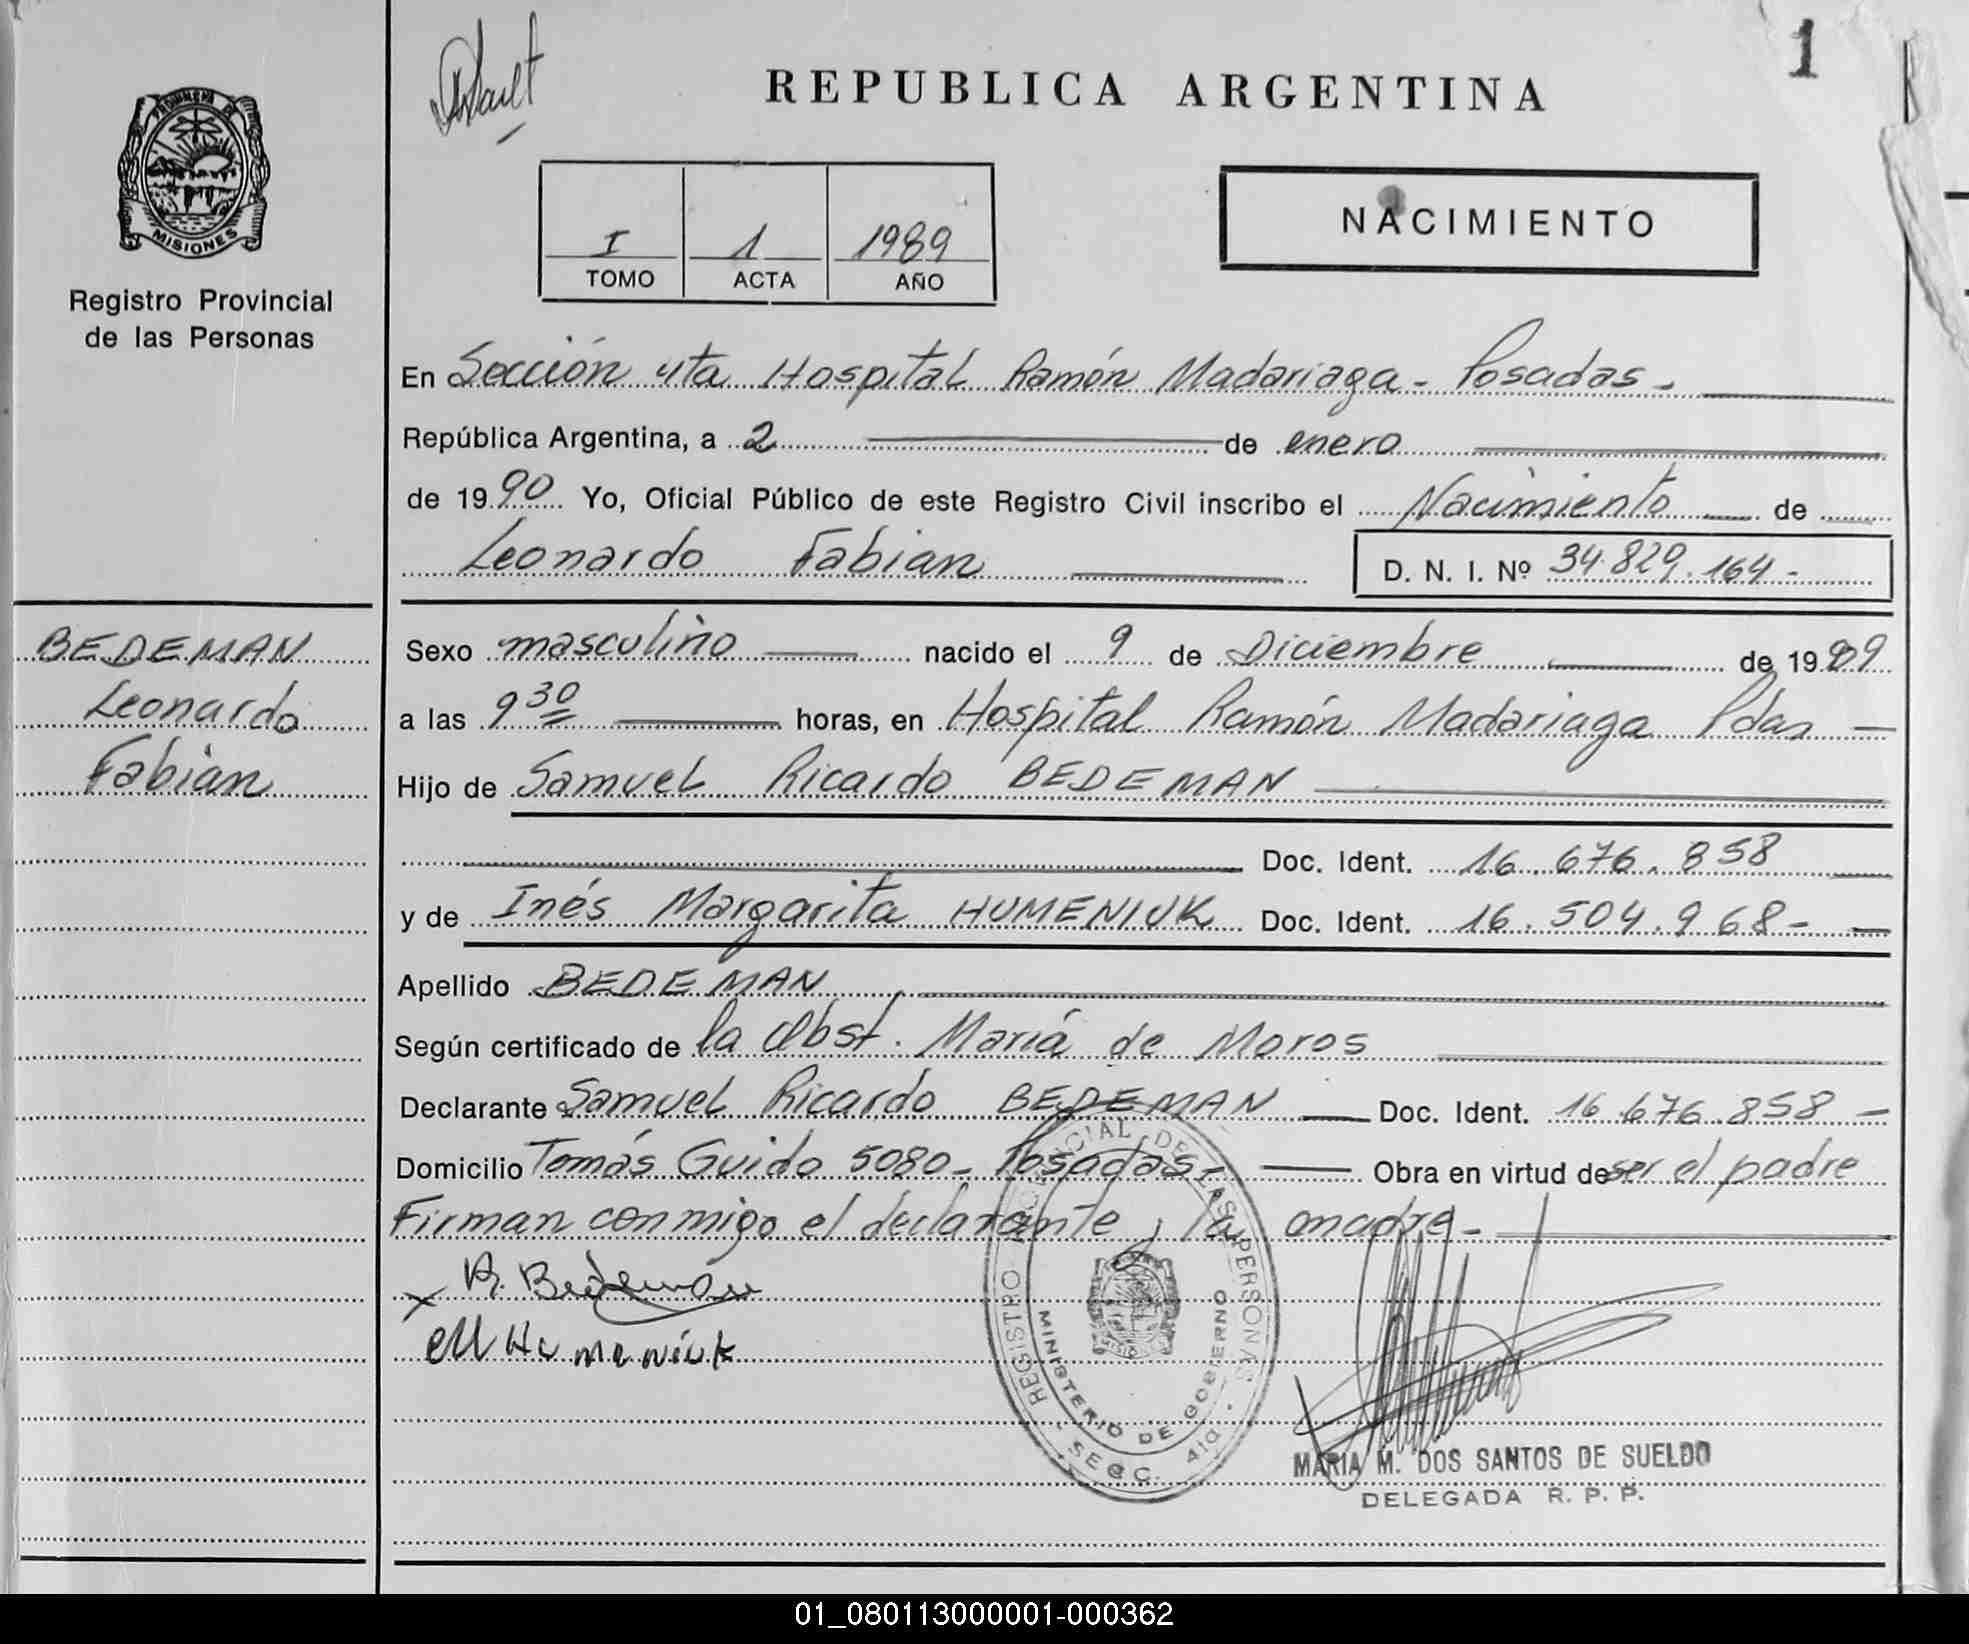 1
REPUBLICA ARGENTINA
PROVINCIA DE
MISIONES
Registro Provincial
de las Personas
I 1 1989
TOMO ACTA AÑO
NACIMIENTO
En Sección 4ta Hospital Ramón Madariaga - Posadas -
República Argentina, a 2 de enero
de 1990 Yo, Oficial Público de este Registro Civil inscribo el Nacimiento de
Leonardo Fabian D. N. I. Nº 34.829.164 -
BEDEMAN
Leonardo
Fabian
Sexo masculino nacido el 9 de Diciembre de 1989
a las 9 30 horas, en Hospital Ramón Madariaga Pdas -
Hijo de Samuel Ricardo BEDEMAN
Doc. Ident. 16.676.858
y de Inés Margarita HUMENIUK Doc. Ident. 16.504.968 -
Apellido BEDEMAN
Según certificado de la Obst. María de Moros
Declarante Samuel Ricardo BEDEMAN Doc. Ident. 16.676.858 -
Domicilio Tomás Guido 5080 - Posadas - Obra en virtud de ser el padre
Firman conmigo el declarante y la madre -
x R. Bedeman
Humeniuk
REGISTRO PROVINCIAL DE LAS PERSONAS
MINISTERIO DE GOBIERNO
SECC. 4ta.
MISIONES
MARIA M. DOS SANTOS DE SUELDO
DELEGADA R. P. P.
01_080113000001-000362